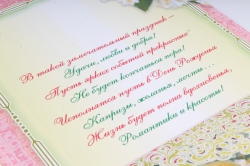 В такой замечательный праздник –
Удачи, любви и добра!
Пусть ярких событий прекрасных
Не будет кончаться пора!
Исполнятся пусть в День Рожденья
Капризы, желания, мечты...
Жизнь будет полна вдохновенья,
Романтики и красоты!